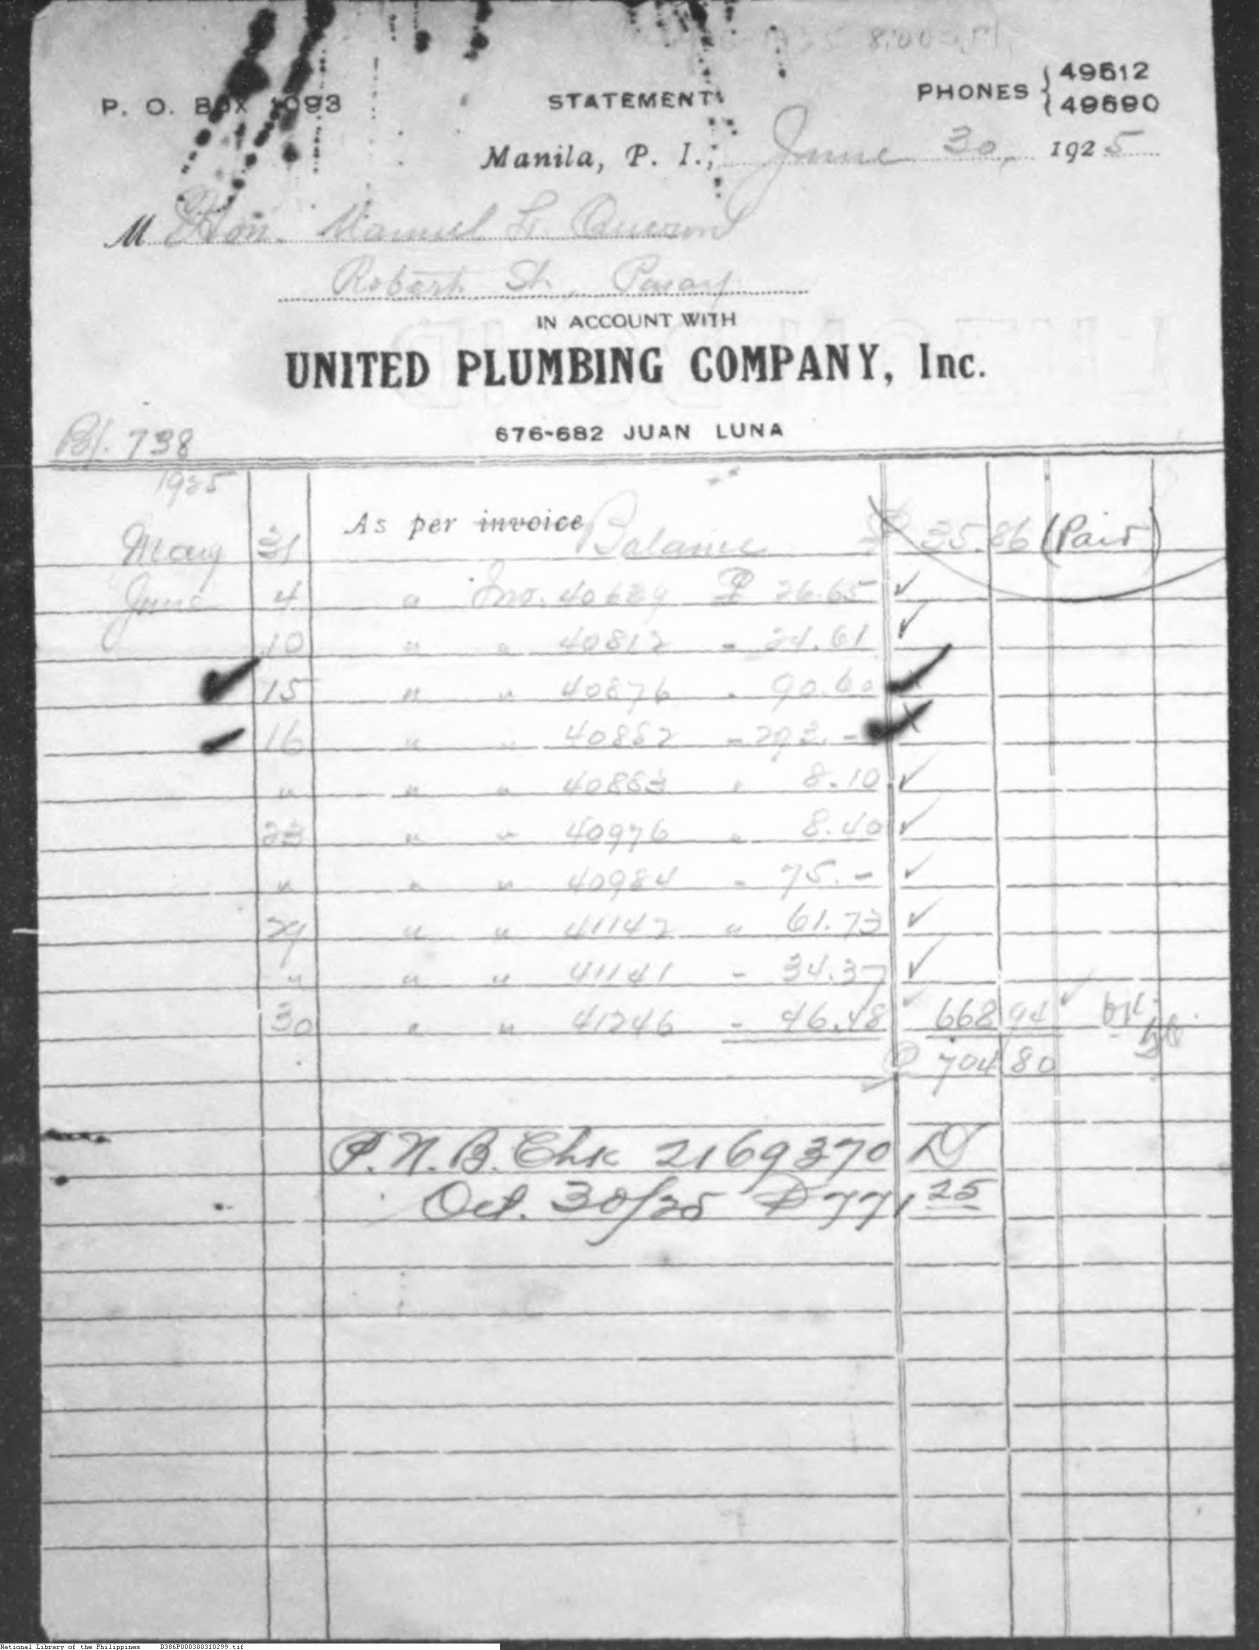 8:00
P. O. Box 1093
STATEMENT
PHONES 49512
49690
Manila, P. I., June 30, 1925
M Hon. Manuel L. Quezon
Robert St., Pasay
IN ACCOUNT WITH
UNITED PLUMBING COMPANY, Inc.
676-682 JUAN LUNA
738
1925
May 31 As per invoice Balance ₱ 35.86 (Paid)
June 4 " Inv. 40689 ₱ 26.65 ✓
10 " " 40812 - 24.61 ✓
✓ 15 " " 40876 - 90.60 ✓
✓ 16 " " 40882 - 293.- ✓
" " " 40883 " 8.10 ✓
23 " " 40976 " 8.40 ✓
" " " 40984 - 75.- ✓
29 " " 41142 " 61.73 ✓
" " " 41141 - 34.37 ✓
30 " " 41246 - 46.48 ✓ 668 94 ✓
₱ 704 80
P.N.B. Chk 2169370
Oct. 30/25 ₱771 25
National Library of the Philippines D386P000300310299.tif